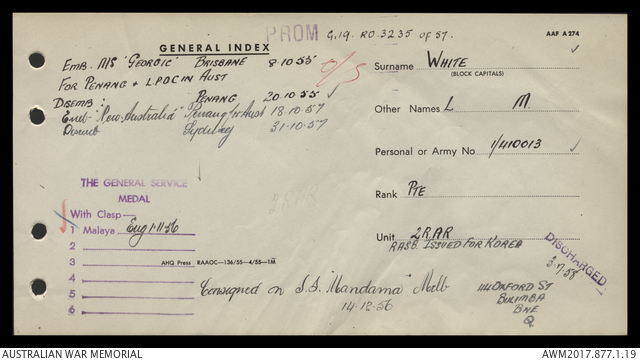 PROM G.19. RO.3235 OF 57.
AAF A 274
GENERAL INDEX
EMB. M/S "GEORGIC" BRISBANE 8·10·55
FOR PENANG & L.P.O.C IN AUST
DISEMB: PENANG 20·10·55 ✓
Emb "New Australia" Penang for Aust 18·10·57
Disemb Sydney 31·10·57
O/S
Surname WHITE
(BLOCK CAPITALS)
Other Names L M
Personal or Army No 1/410013
Rank PTE
Unit 2RAR
RASB ISSUED FOR KOREA
2RAR
THE GENERAL SERVICE
MEDAL
With Clasp—
1 Malaya 1·11·56
2
3
4
5
6
AHQ Press RAAOC—136/55—4/55—1M
Consigned on S.S. "Mandama" Melb
14·12·56
DISCHARGED
3·7·58
114 OXFORD ST
BULIMBA
BNE
Q.
AUSTRALIAN WAR MEMORIAL
AWM2017.877.1.19